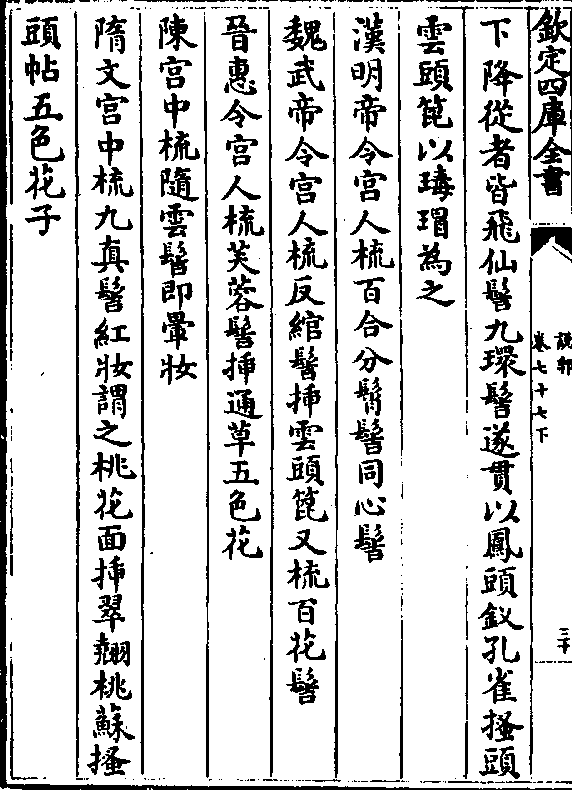 欽定四庫全書
說郛
卷七十七下
三十
下降從者皆飛仙髻九環髻遂貫以鳳頭釵孔雀搔頭
雲頭篦以瑇瑁為之
漢明帝令宫人梳百合分髾髻同心髻
魏武帝令宫人梳反綰髻揷雲頭篦又梳百花髻
晉惠令宫人梳芙蓉髻揷通草五色花
陳宫中梳隨雲髻即暈妝
隋文宫中梳九真髻紅妝謂之桃花面揷翠翹桃蘇搔
頭帖五色花子